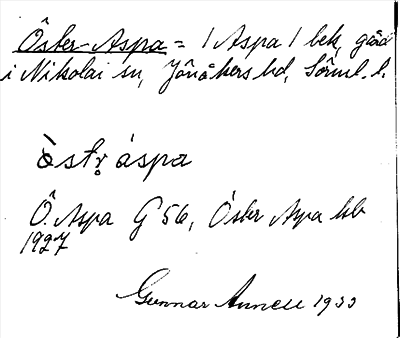 Öster-Aspa = 1 Aspa 1 bek, gård
i Nikolai sn, Jönåkers hd, Sörml. l.
östr̥ áspa
Ö. Aspa G 56, Öster Aspa kb
1927
Gunnar Annell 1933